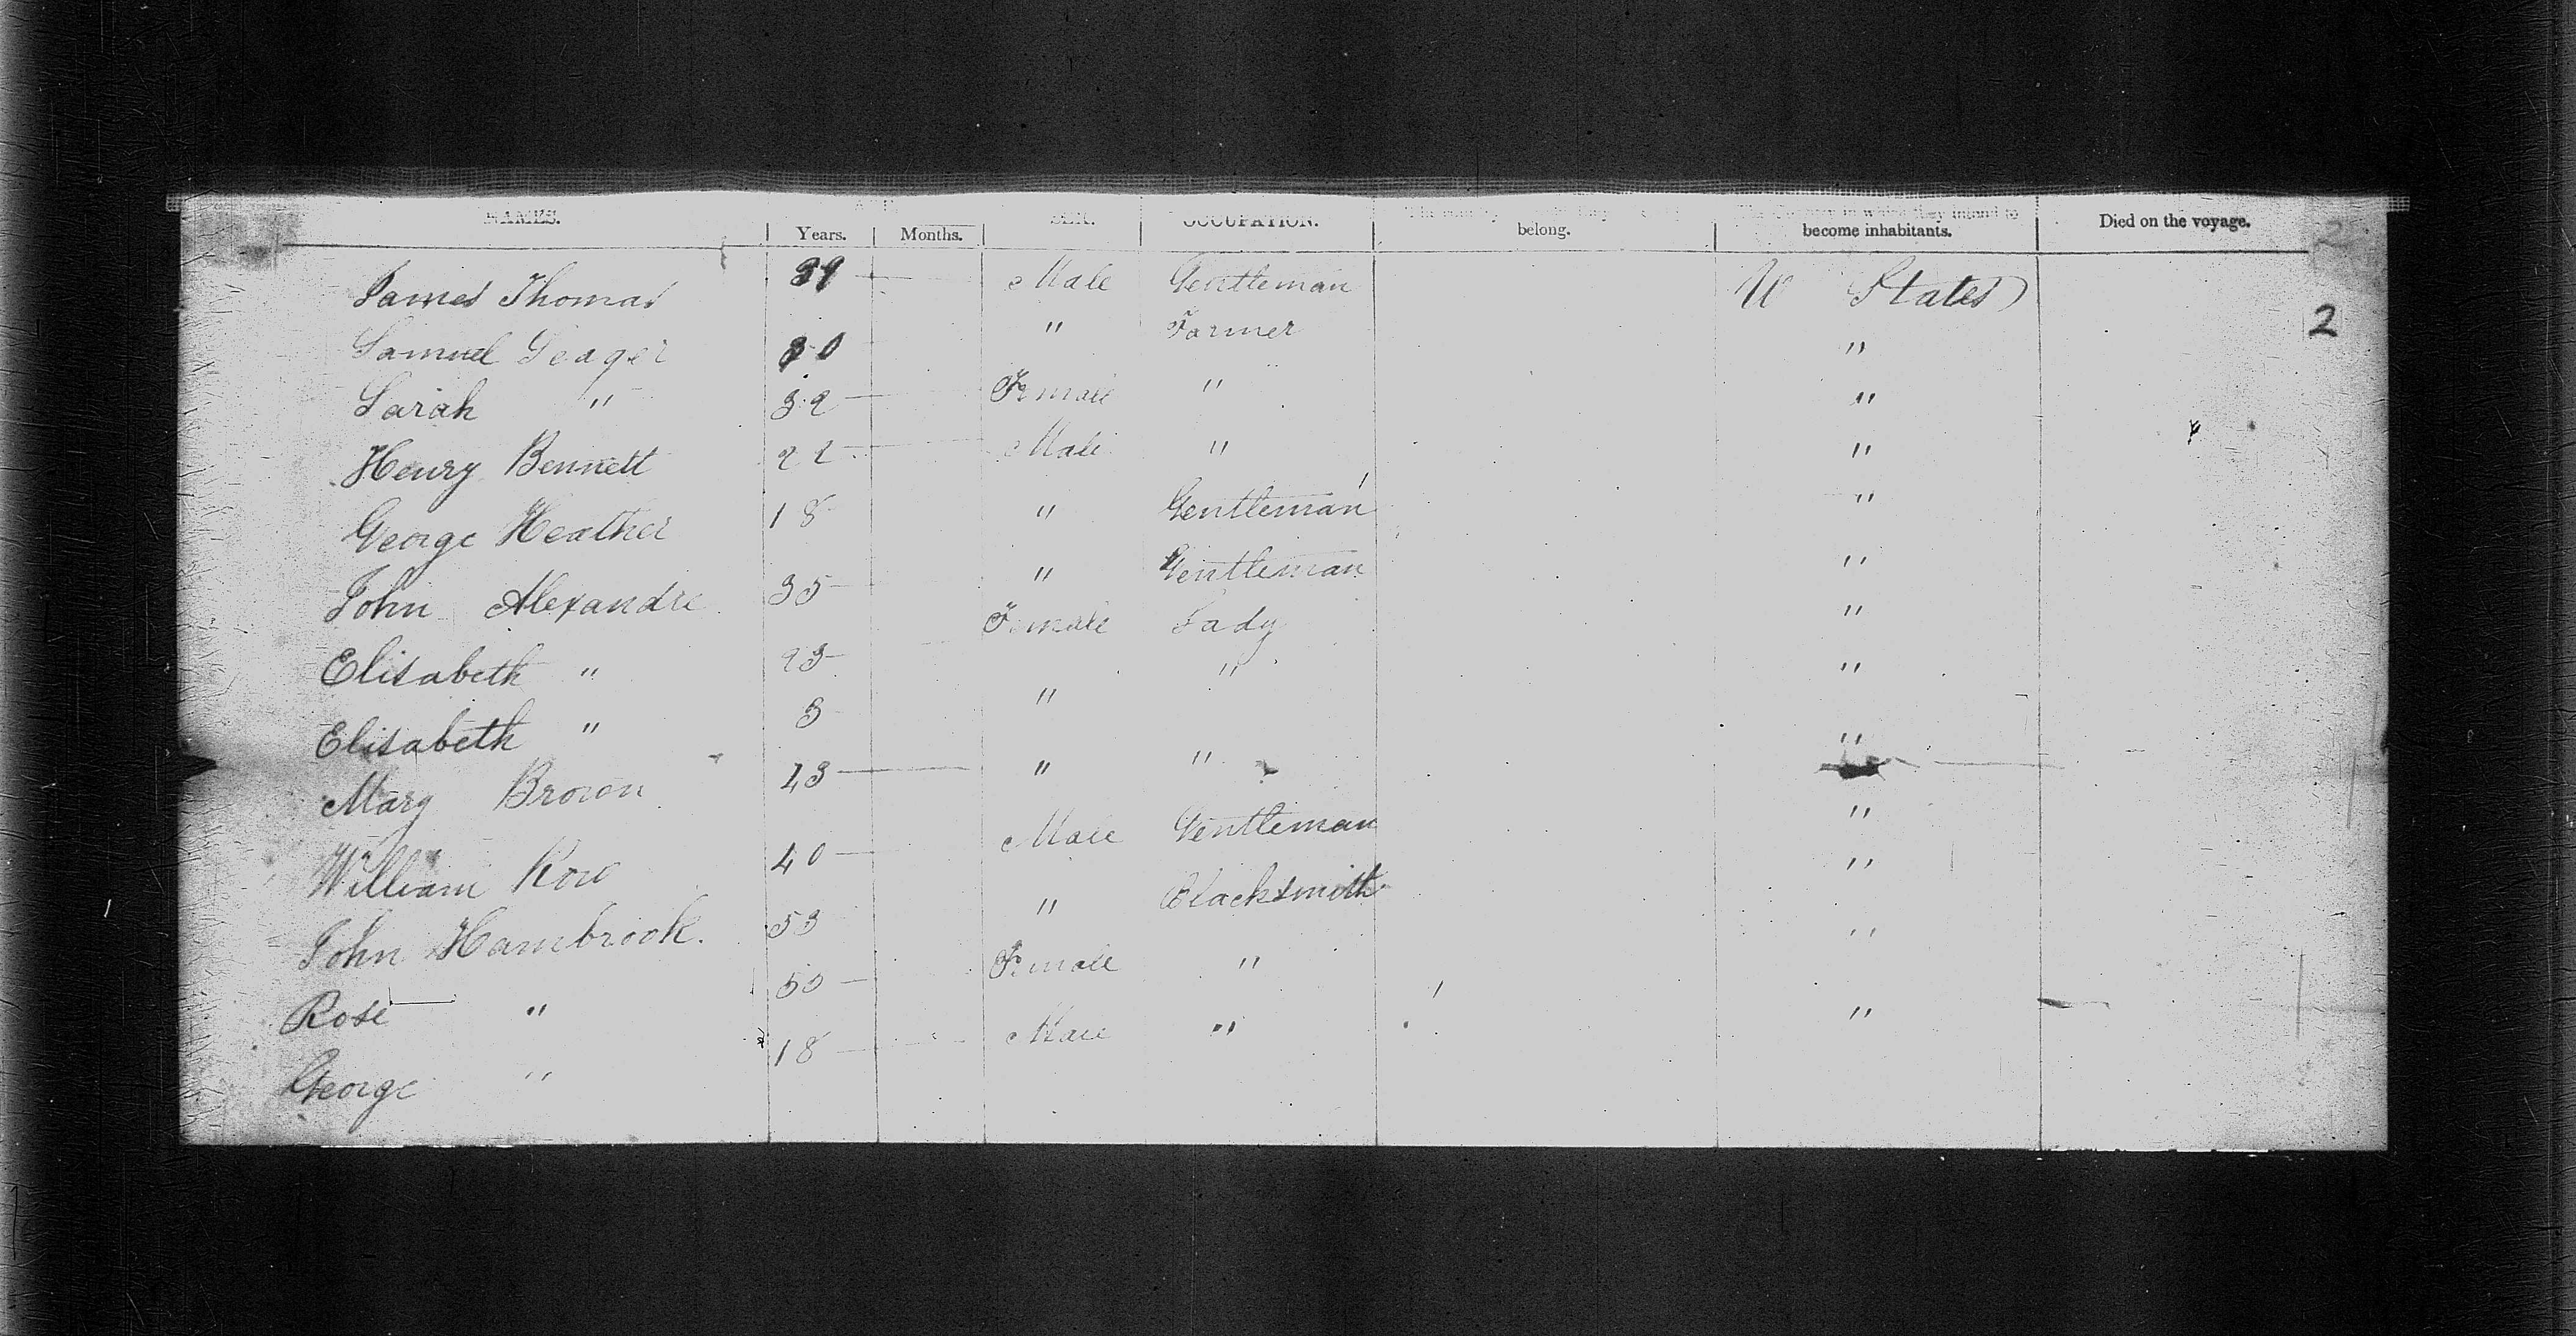 NAMES. Years. Months. SEX. OCCUPATION. belong. in which they intend to become inhabitants. Died on the voyage.
2
James Thomas Male Gentleman U States
2
Samuel " Farmer "
Sarah " 32 Female " "
Henry Bennett 22 Male " "
George Heather 18 " Gentleman "
John Alexandre 35 " Gentleman "
Elisabeth " 23 Female Lady "
Elisabeth " 3 " " "
Mary Brown 43 " " "
William Row 40 Male Gentleman "
John Hambrook. 53 " Blacksmith "
Rose " 50 Female " "
George " 18 Male " "